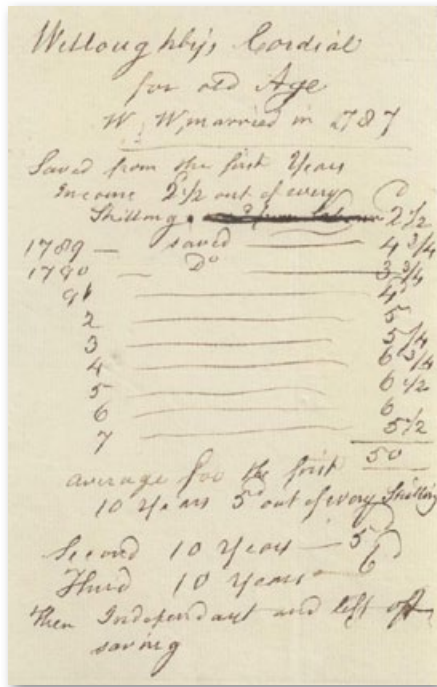 Willoughby's Cordial
for old Age
W. W. married in 1787
Saved from the first Years
Income 2 1/2 out of every
Shilling. 2 1/2
1789 — saved — 4 3/4
1790 — Do — 3 3/4
91 — 4
2 — 5
3 — 5 1/4
4 — 6 3/4
5 — 6 1/2
6 — 6
7 — 5 1/2
50
average for the first
10 Years 5d out of every Shilling
Second 10 Years — 5
Third 10 Years — 6
Then Independant and left off
saving